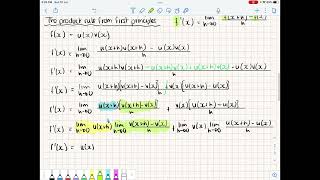 The product rule from first principles
f'(x) = lim h→0 f(x+h)-f(x) / h
f(x) = u(x)v(x)
f'(x) = lim h→0 u(x+h)v(x+h) - u(x)v(x) / h
f'(x) = lim h→0 u(x+h)v(x+h) - u(x+h)v(x) + u(x+h)v(x) - u(x)v(x) / h
f'(x) = lim h→0 u(x+h)[v(x+h)-v(x)] / h + v(x)[u(x+h)-u(x)] / h
f'(x) = lim h→0 u(x+h) [v(x+h)-v(x)] / h + v(x) [u(x+h)-u(x)] / h
f'(x) = lim h→0 u(x+h) lim h→0 v(x+h)-v(x) / h + lim h→0 v(x) lim h→0 u(x+h)-u(x) / h
f'(x) = u(x)